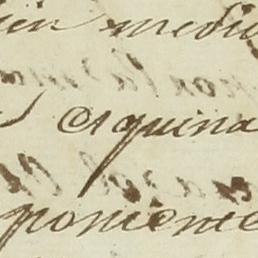 ien medio
esquina
poniente